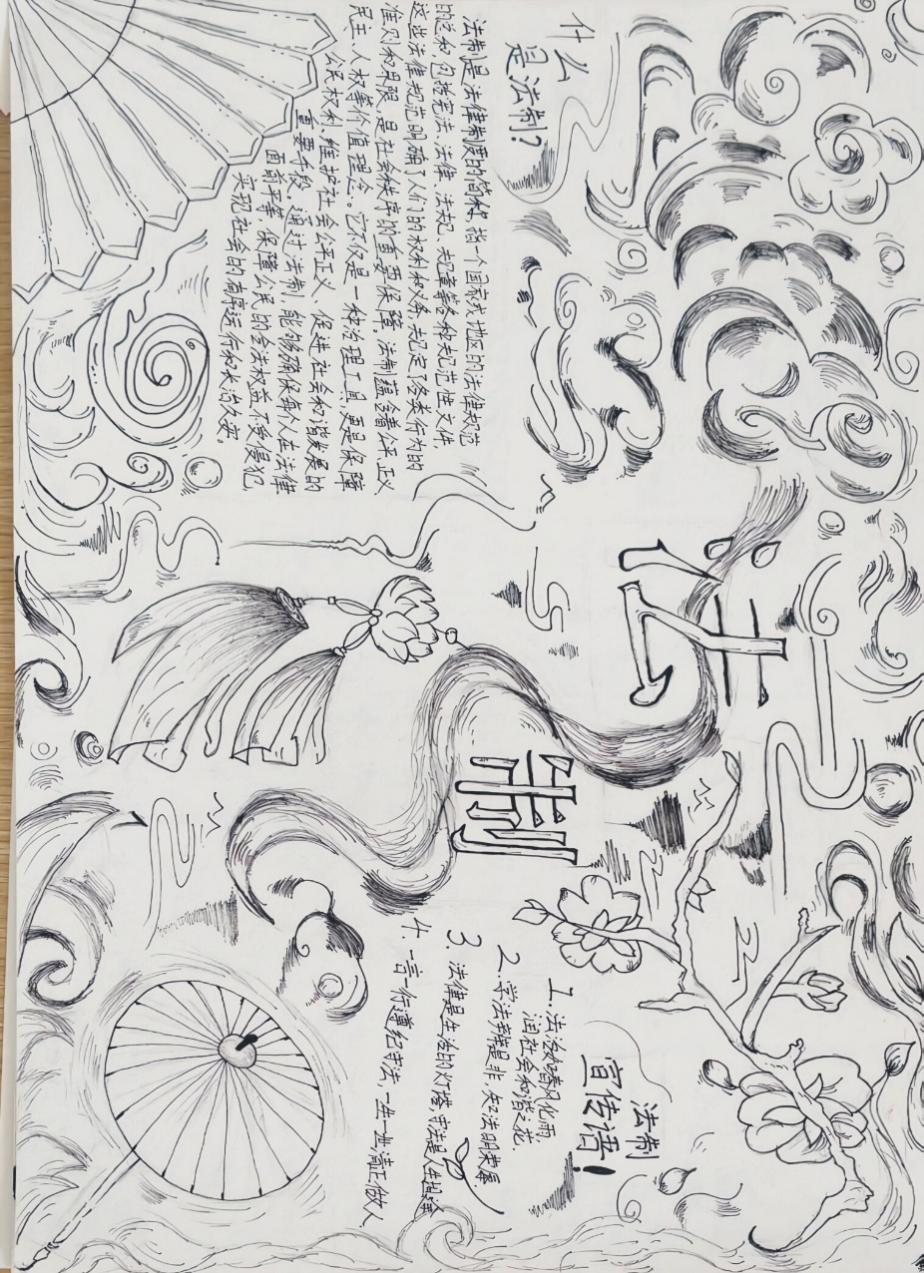 什么
是法制?
法制是法律制度的简称,指一个国家或地区的法律规范
的总和,包括宪法、法律、法规、规章等各种规范性文件
这些法律规范明确了人们的权利和义务,规定了各类行为的
准则和界限,是社会秩序的重要保障,法制蕴含着公平正义、
民主、人权等价值理念。它不仅是一种治理工具,更是保障
公民权利,维护社会公平正义、促进社会和谐发展的
重要手段。通过法制,能够确保每个人在法律
面前平等,保障公民的合法权益不受侵犯,
实现社会的有序运行和长治久安。
法
制
法制
宣传语!
1.法治如春风化雨,
润社会和谐之花.
2.学法辨是非,知法明荣辱.
3.法律是生活的灯塔,守法是人生坦途
4.一言一行遵纪守法,一生一世清正做人.